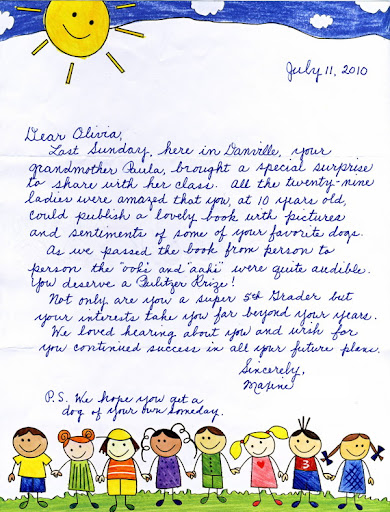 July 11, 2010
Dear Olivia,
Last Sunday, here in Danville, your
grandmother Paula, brought a special surprise
to share with her class. All the twenty-nine
ladies were amazed that you, at 10 years old,
could publish a lovely book with pictures
and sentiments of some of your favorite dogs.
As we passed the book from person to
person the "ooh's" and "aah's" were quite audible.
You deserve a Pulitzer Prize!
Not only are you a super 5th Grader but
your interests take you far beyond your years.
We loved hearing about you and wish for
you continued success in all your future plans.
Sincerely,
Maxine
P.S. We hope you get a
dog of your own someday.
3